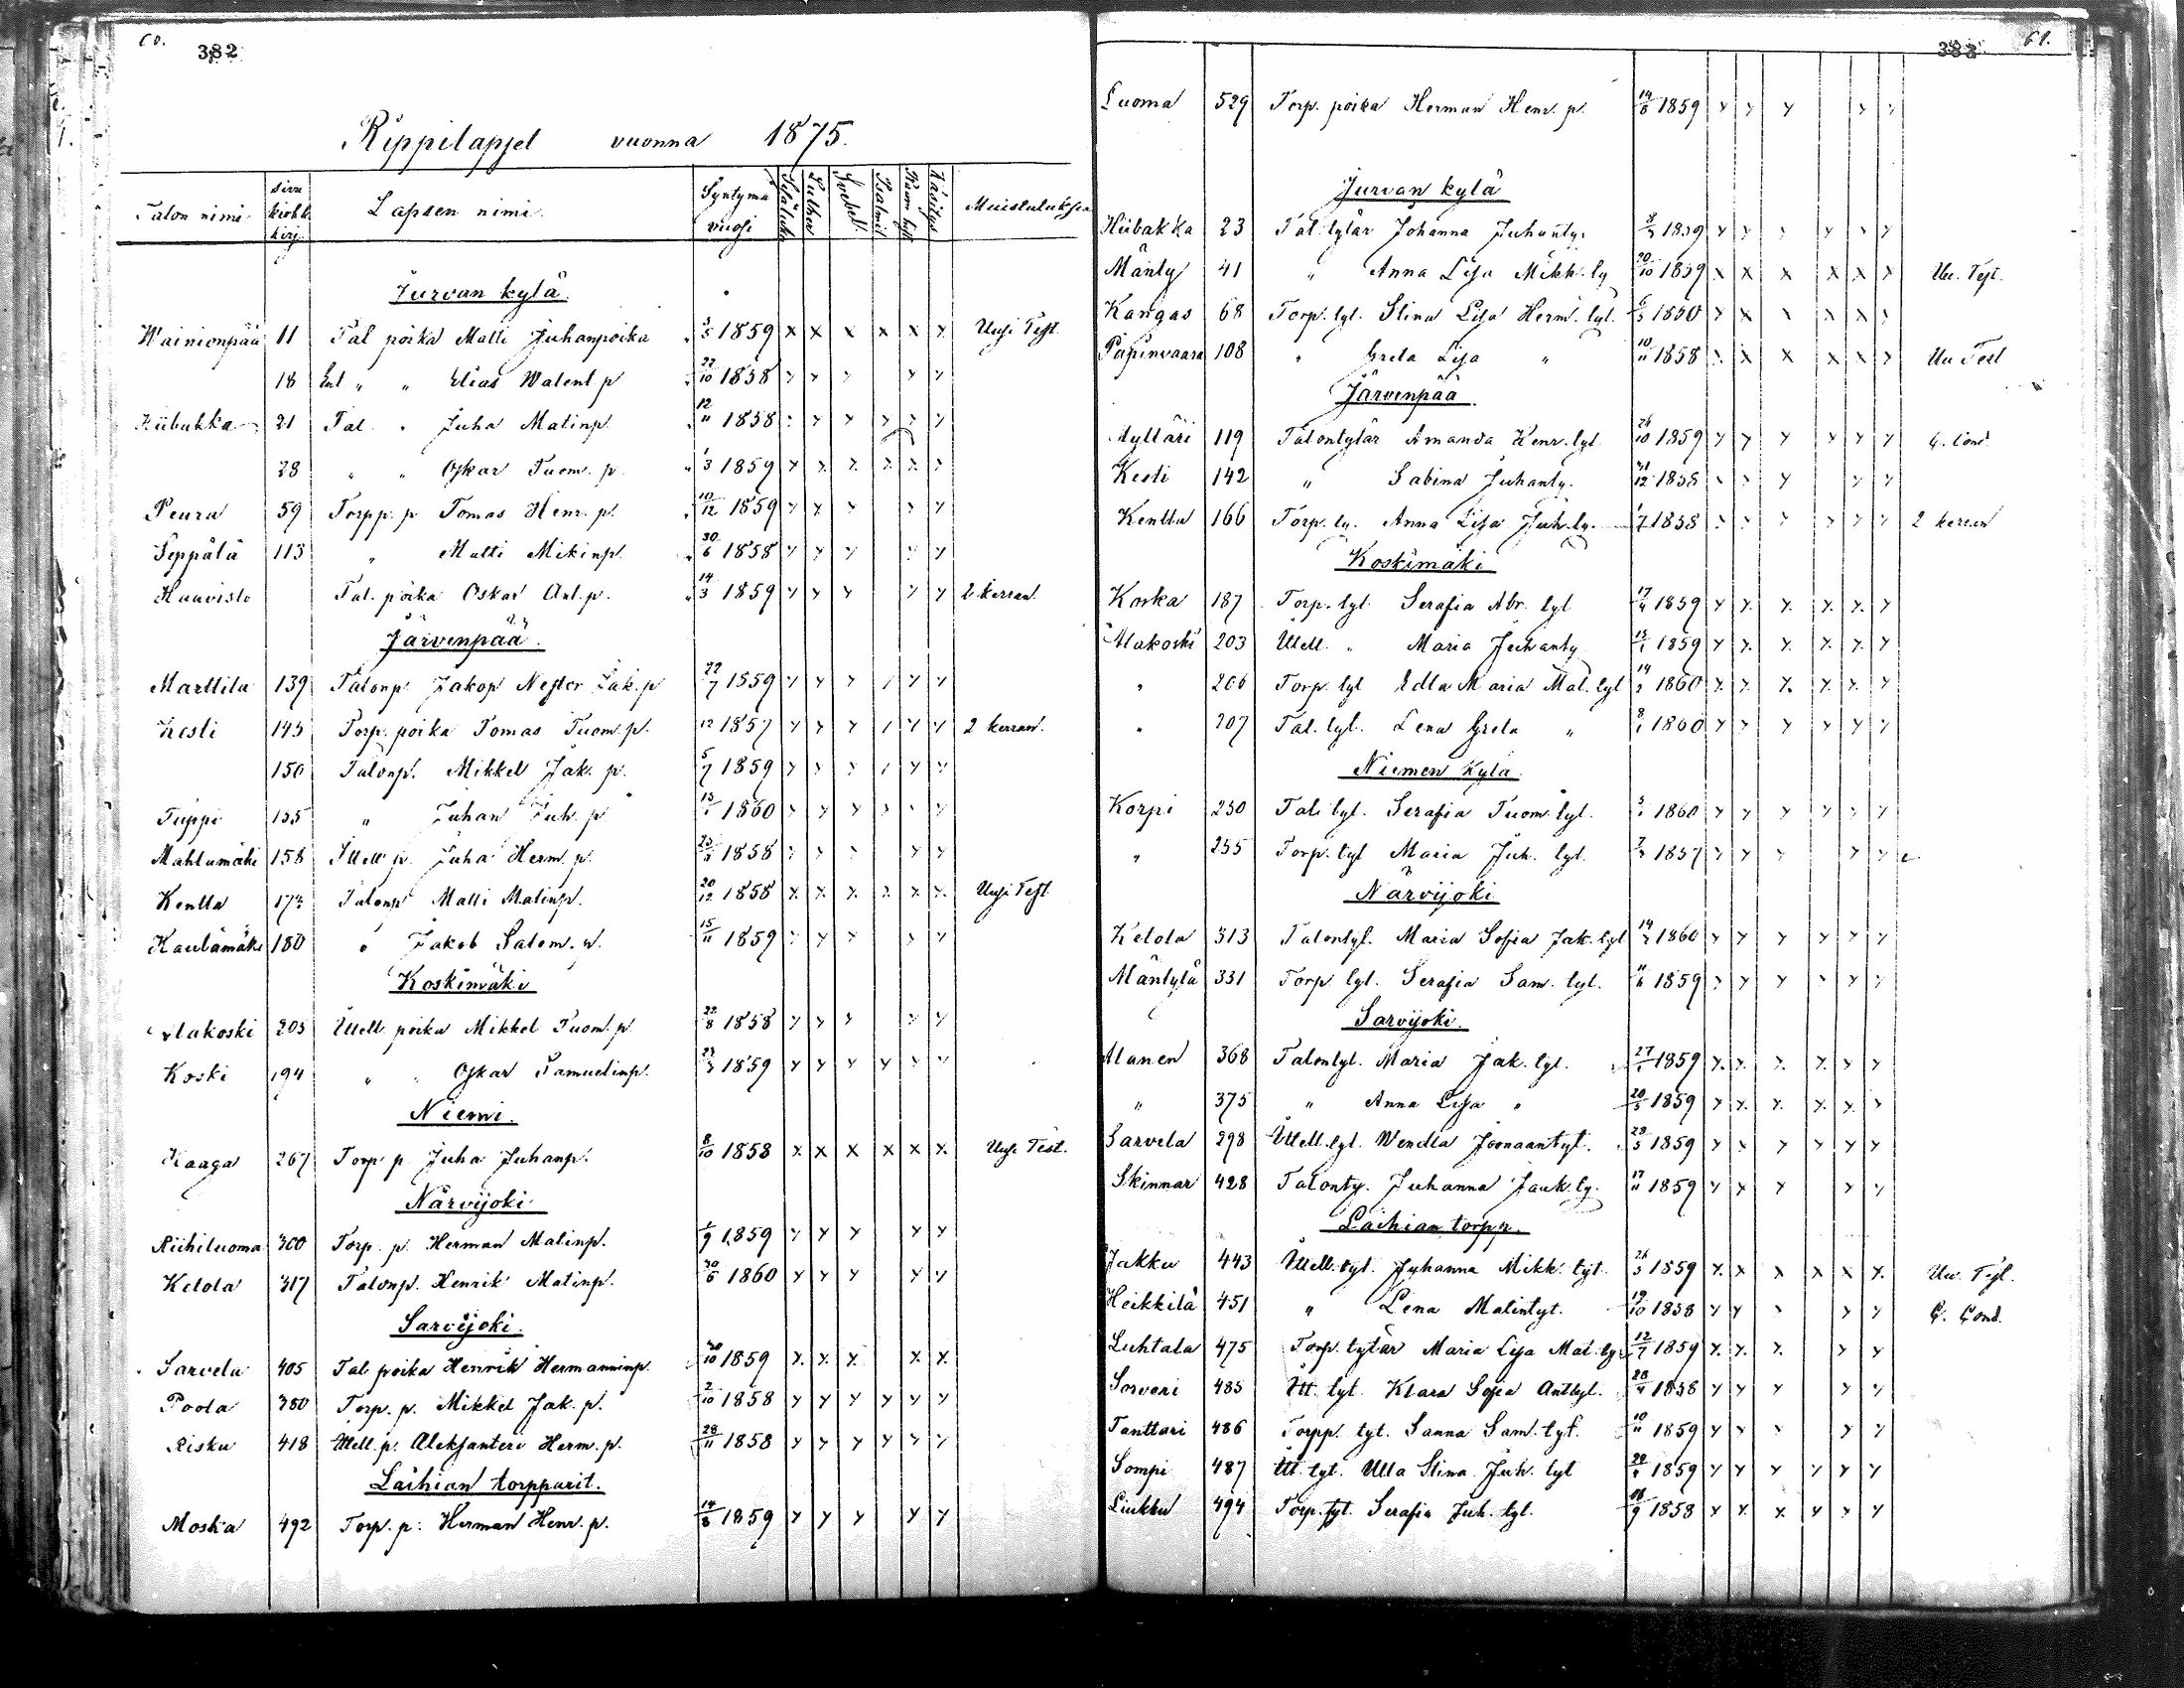 60.
382
Rippilapset vuonna 1875.
Talon nimi | Sivu kirkk. kirj. | Lapsen nimi. | Syntymä vuosi | Sisäluku | Luther | Svebel. | Psalmit | Käsitys | Muistutuksia
Jurvan kylä.
Wainionpää 11 Tal poika Matti Juhanpoika 3/5 1859 x x x x x x Uusi Test.
18 Ent " " Elias Walent p 22/10 1858
Hiibakka 21 Tal. " Juha Matinp. 12/11 1858
28 " " Oskar Tuom. p. 1/3 1859
Peura 59 Torpp. p Tomas Henr. p. 10/12 1859
Seppälä 113 " Matti Mikinp. 30/6 1858
Haavisto Tal. poika Oskar Ant. p. 14/3 1859 2 kerran.
Järvenpää.
Marttila 139 Talonp. Jakop Nestor Jak. p 22/7 1859
Kesti 145 Torp. poika Tomas Tuom. p. 12 1857 2 kerran.
150 Talonp. Mikkel Jak. p. 5/7 1859
Tuppi 155 " Juhan Juh. p 1860
Mahlamäki 158 Itell p. Juha Herm. p. 1858
Kentta 172 Talonp Matti Matinp. 20/12 1858 x x x x x x Uusi Test.
Kaulamäki 180 " Jakob Salom. p. 15/11 1859
Koskimäki
Alakoski 205 Itell poika Mikkel Tuom. p. 22/8 1858
Koski 194 " " Oskar Samuelinp. 1859
Niemi.
Kaaga 267 Torp p. Juha Juhanp. 8/10 1858 x x x x x x Uusi Test.
Närvijoki
Riihiluoma 300 Torp. p. Herman Matinp. 1/9 1859
Ketola 317 Talonp. Henrik Matinp. 30/6 1860
Sarvijoki.
Sarvela 405 Tal. poika Henrik Hermanninp. 1859
Poola 380 Torp. p. Mikkel Jak. p. 2/10 1858
Risku 418 Itell. p. Aleksanteri Herm. p. 28/11 1858
Laihian torpparit.
Moska 492 Torp. p: Herman Henr. p. 14/8 1859
61.
383
Luoma 529 Torp. poika Herman Henr. p. 14/8 1859
Jurvan kylä
Hiibakka 23 Tal. tytär Johanna Juhanty. 1859
Mänty 41 " Anna Lisa Mikk. ty 20/10 1859 x x x x x x Uu. Test.
Kangas 68 Torp. tyt. Stina Lisa Herm. tyt.
Papinvaara 108 " Greta Lisa " 10/11 1858 Uu Test
Järvenpää.
Mylläri 119 Talontytär Amanda Henr. tyt. 26/10 1859
Kesti 142 " Sabina Juhanty. 1858
Kentta 166 Torp. ty. Anna Lisa Juh. ty. 1/7 1858 2 kerran
Koskimäki
Koska 187 Torp. tyt. Serafia Abr. tyt 1859
Alakoski 203 Itell. " Maria Juhanty 1859
" 206 Torp. tyt Edla Maria Mat. tyt 1860
" 207 Tal. tyt. Lena Greta " 1860
Niemen kylä.
Korpi 250 Tal. tyt. Serafia Tuom. tyt. 1860
" 255 Torp. tyt Maria Juh. tyt. 1857
Närvijoki
Ketola 313 Talontyt. Maria Sofia Jak. tyt 1860
Mäntylä 331 Torp tyt. Serafia Sam. tyt. 1859
Sarvijoki.
Alanen 368 Talontyt. Maria Jak. tyt. 27/1 1859
" 375 " Anna Lisa " 20/5 1859
Sarvela 398 Itell. tyt. Wendla Joonaantyt. 28/5 1859
Skinnar 428 Talonty. Juhanna Jaak. ty. 17/11 1859
Laihian torpp.
Jakku 443 Itell. tyt. Juhanna Mikk. tyt. 1859 Uu. Test.
Heikkilä 451 " Lena Matintyt. 19/10 1858
Luhtala 475 Torp. tytär Maria Lisa Mat. ty 12/7 1859
Sorvari 485 It. tyt. Klara Sofia Anttyt. 1858
Tanttari 486 Torpp. tyt. Sanna Sam. tyt. 10/11 1859
Sompi 487 It. tyt. Ulla Stina Juh. tyt 1859
Liukku 494 Torp. tyt. Serafia Juh. tyt. 1858